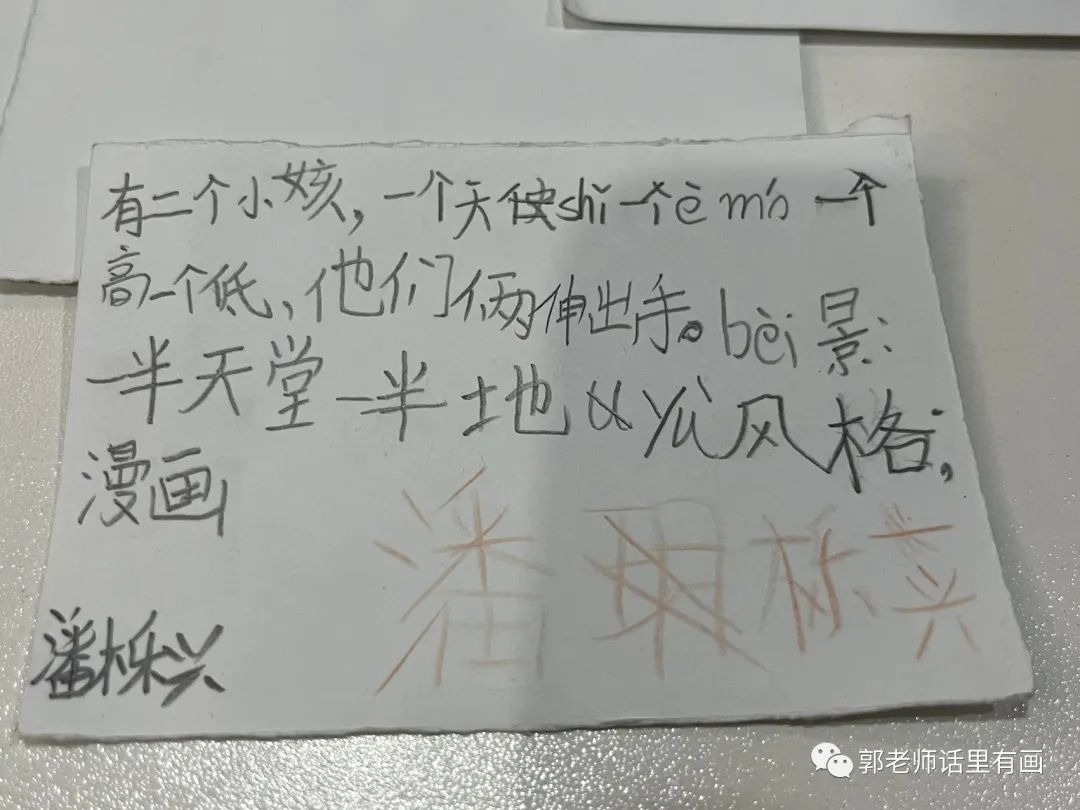 有二个小孩，一个天使shǐ一个è mó 一个
高一个低、他们俩伸出手。bèi景：
一半天堂一半地 风格：
漫画
潘 栎兴
潘栎兴
郭老师话里有画